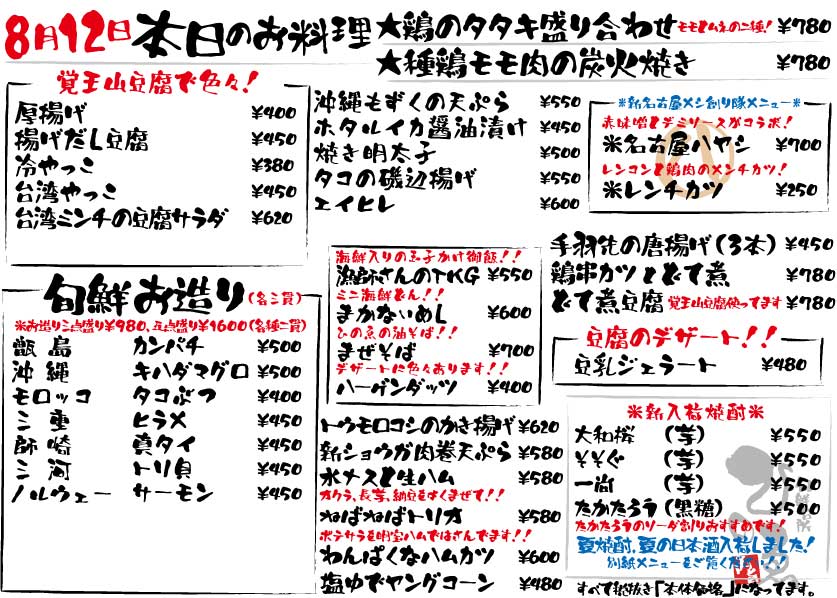 8月12日 本日のお料理
★鶏のタタキ盛り合わせ モモとムネの二種! ¥780
★種鶏モモ肉の炭火焼き ¥780
覚王山豆腐で色々!
厚揚げ ¥400
揚げだし豆腐 ¥450
冷やっこ ¥380
台湾やっこ ¥450
台湾ミンチの豆腐サラダ ¥620
沖縄もずくの天ぷら ¥550
ホタルイカ醤油漬け ¥450
焼き明太子 ¥500
タコの磯辺揚げ ¥550
エイヒレ ¥600
※新名古屋メシ創り隊メニュー※
赤味噌とデミソースがコラボ!
※名古屋ハヤシ ¥700
レンコンと鶏肉のメンチカツ!
※レンチカツ ¥250
旬鮮お造り(各三貫)
※お造り三点盛り¥980、五点盛り¥1600(各種二貫)
甑島 カンパチ ¥500
沖縄 キハダマグロ ¥500
モロッコ タコぶつ ¥400
三重 ヒラメ ¥450
師崎 真タイ ¥450
三河 トリ貝 ¥450
ノルウェー サーモン ¥450
海鮮入りの玉子かけ御飯!!
漁師さんのTKG ¥550
ミニ海鮮どん!!
まかないめし ¥600
ひの魚の油そば!!
まぜそば ¥700
デザートに色々あります!!
ハーゲンダッツ ¥400
トウモロコシのかき揚げ ¥620
新ショウガ肉巻天ぷら ¥580
水ナスと生ハム ¥580
オクラ、長芋、納豆をよくまぜて!!
ねばねばトリオ ¥580
ポテサラを明宝ハムではさんでます!!
わんぱくなハムカツ ¥600
塩ゆでヤングコーン ¥480
手羽先の唐揚げ(3本) ¥450
鶏串カツとどて煮 ¥780
どて煮豆腐 覚王山豆腐使ってます ¥780
豆腐のデザート!!
豆乳ジェラート ¥480
※新入荷焼酎※
大和桜 (芋) ¥550
そそぐ (芋) ¥550
一尚 (芋) ¥550
たかたろう(黒糖) ¥500
たかたろうのソーダ割りおすすめです!
夏焼酎、夏の日本酒入荷しました!
別紙メニューをご覧ください!!
すべて税抜き「本体価格」になってます。